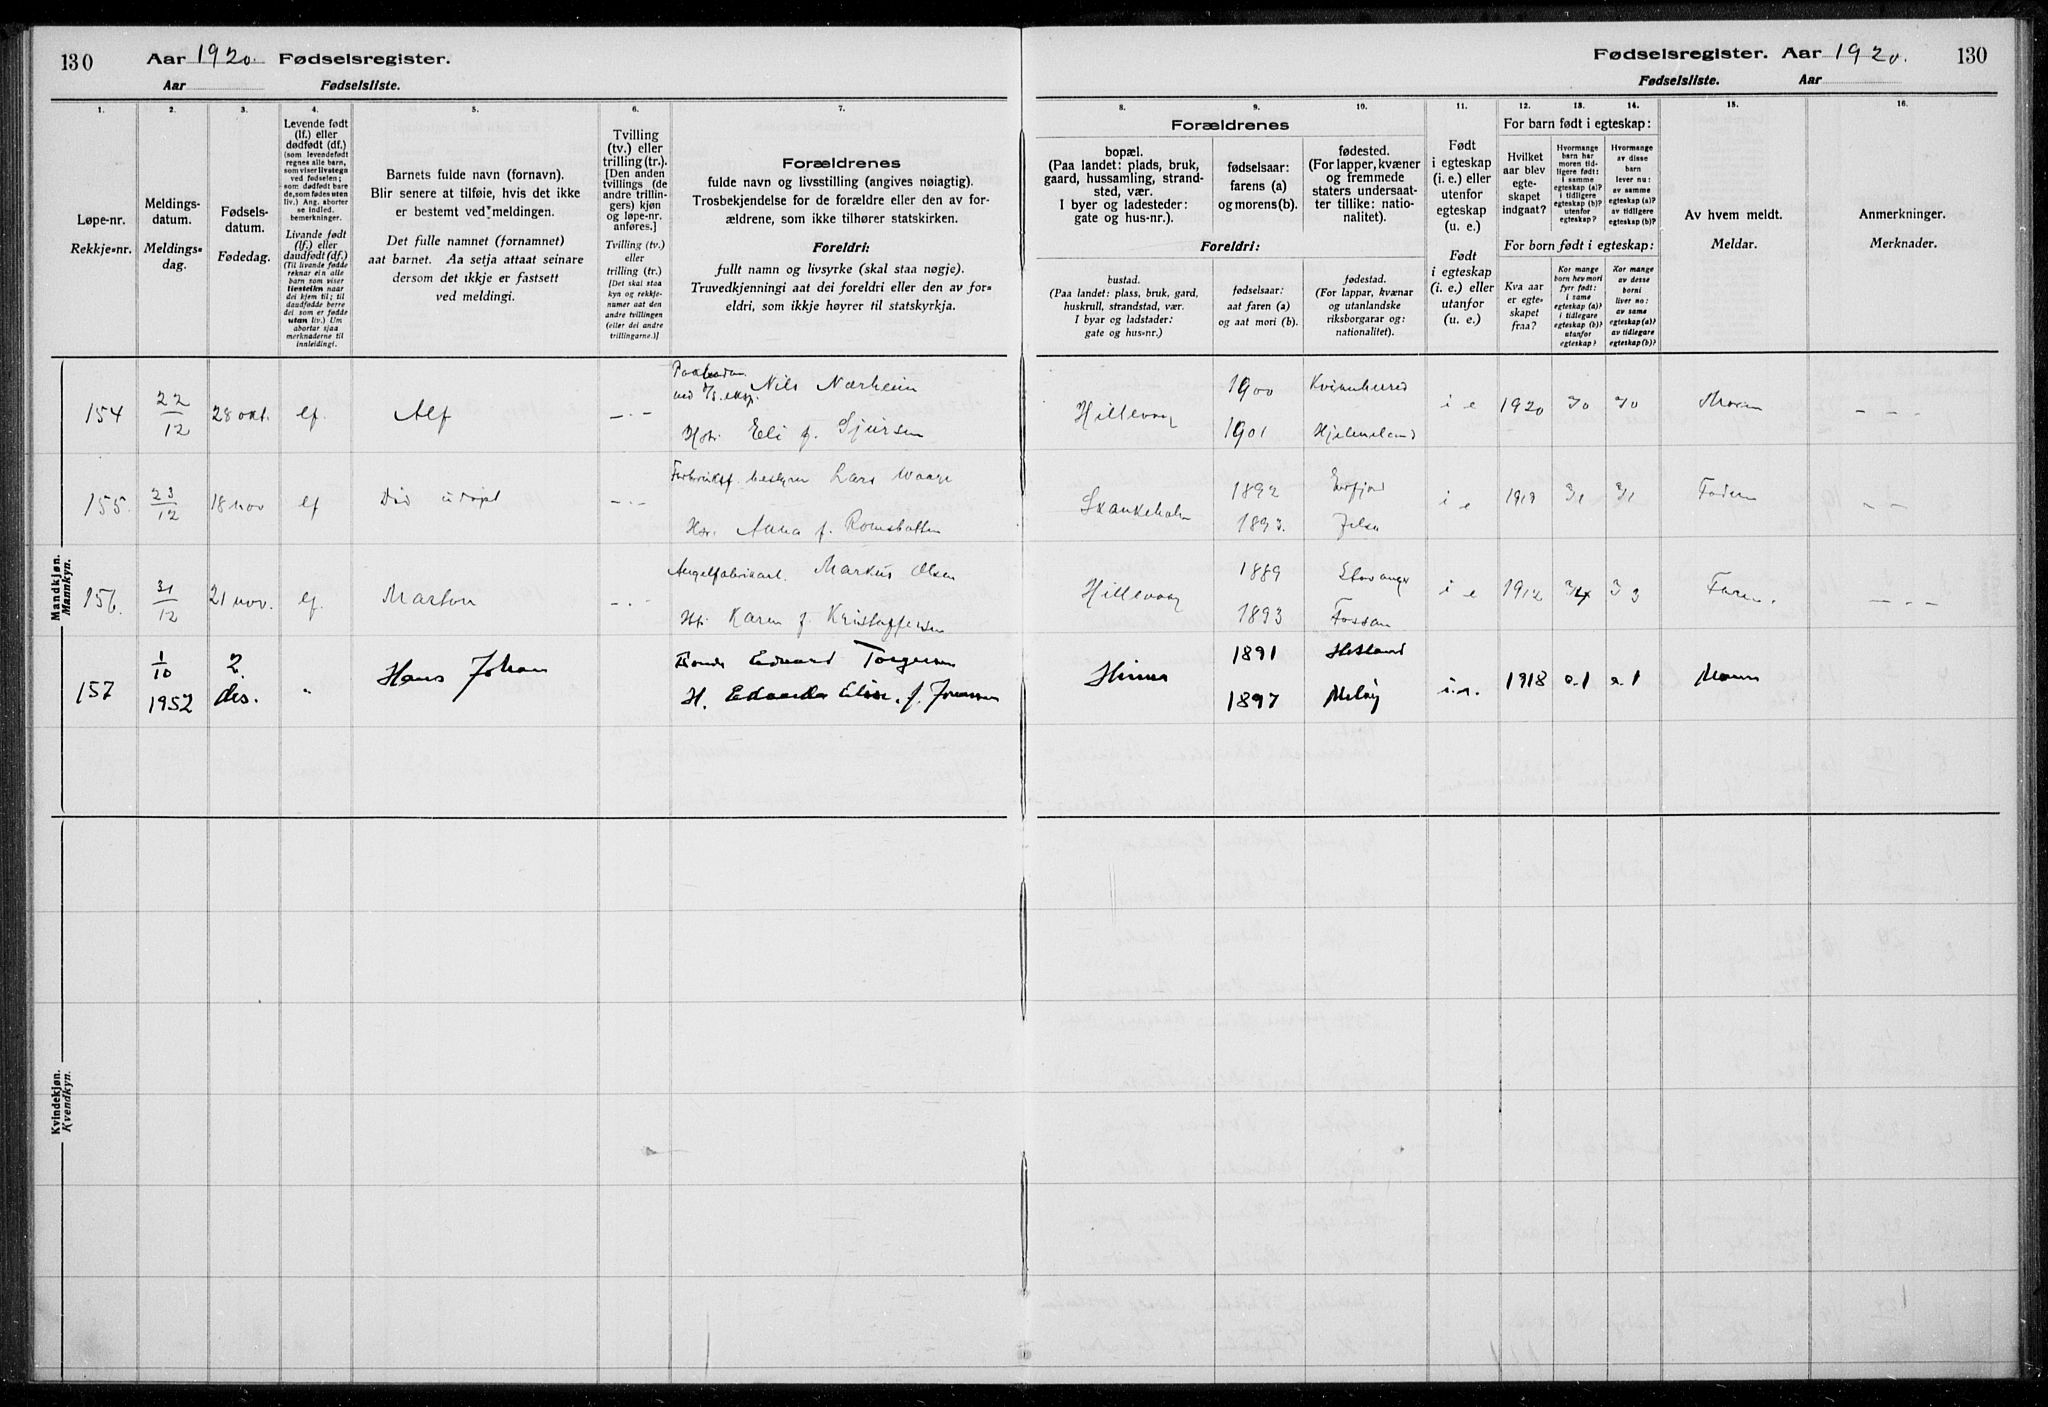 130 Aar 1920. Fødselsregister.
Aar Fødselsliste.
Fødselsregister. Aar 1920. 130
Fødselsliste. Aar
1. 2. 3. 4. 5. 6. 7.
Løpe-nr.
Rekkje-nr.
Meldings-
datum.
Meldings-
dag.
Fødsels-
datum.
Fødedag.
Levende født
(lf.) eller
dødfødt (df.)
(som levendefødt
regnes alle barn,
som viser livstegn
ved fødselen;
som dødfødt bare
de, som fødes uten
liv.) Ang. aborter
se indled.
bemerkninger.
Livande født
(lf.) eller
daudfødt (df.)
(Til livande fødde
reknar ein alle
barn som viser
livsteikn naar
dei kjem til; til
daudfødde berre
dei som er fødde
utan liv.) Um
abortar sjaa
merknaderne til
innleidingi.
Barnets fulde navn (fornavn).
Blir senere at tilføie, hvis det ikke
er bestemt ved meldingen.
Det fulle namnet (fornamnet)
aat barnet. Aa setja attaat seinare
dersom det ikkje er fastsett
ved meldingi.
Tvilling
(tv.) eller
trilling (tr.).
[Den anden
tvillings (de
andre trillin-
gers) kjøn
og løpe-nr.
anføres.]
Tvilling (tv.)
eller
trilling (tr.)
[Det skal staa
kyn og rekkje-
numer aat den
andre tvillingen
(eller dei andre
trillingarne.)]
Forældrenes
fulde navn og livsstilling (angives nøiagtig).
Trosbekjendelse for de forældre eller den av for-
ældrene, som ikke tilhører statskirken.
Foreldri:
fullt namn og livsyrke (skal staa nøgje).
Truvedkjenningi aat dei foreldri eller den av for-
eldri, som ikkje høyrer til statskyrkja.
8. 9. 10. 11. 12. 13. 14. 15. 16.
Forældrenes
bopæl.
(Paa landet: plads, bruk,
gaard, hussamling, strand-
sted, vær.
I byer og ladesteder:
gate og hus-nr.).
fødselsaar:
farens (a)
og morens (b).
fødested.
(For lapper, kvæner
og fremmede
staters undersaat-
ter tillike: natio-
nalitet).
Foreldri:
bustad.
(Paa landet: plass, bruk, gard,
huskrull, strandstad, vær.
I byar og ladstader:
gate og hus-nr.)
fødselsaar:
aat faren (a)
og aat mori (b).
fødestad.
(For lappar, kvænar
og utanlandske
riksborgarar og:
nationalitet).
Født
i egteskap
(i. e.) eller
utenfor
egteskap
(u. e.)
Født
i egteskap
(i. e.) eller
utanfor
(u. e.)
For barn født i egteskap:
Hvilket
aar blev
egte-
skapet
indgaat?
Hvormange
barn har
moren tid-
ligere født:
i samme
egteskap (a)?
i tidligere
egteskap (b)?
utenfor
egteskap?
Hvormange
av disse
barn
lever nu:
av samme
egteskap (a)?
av tidligere
egteskap (b)?
For born født i egteskap:
Kva aar
er egte-
skapet
fraa?
Kor mange
born hev mori
fyrr født:
i same
egteskap (a)?
i tidlegare
egteskap (b)?
utanfor
egteskap?
Kor mange
av desse
borni
liver no:
av same
egteskap (a)?
av tidlegare
egteskap (b)?
Av hvem meldt.
Meldar.
Anmerkninger.
Merknader.
Mandkjøn.
Mannkyn.
154 22/12 28 okt. lf. Alf — Nils Nærheim
Eli f. Sjursen
Hillevaag 1900 Kvinnherred
1901 Hjelmeland i e 1920 Moren
155. 23/12 18 nov lf Død udøpt — bestyrer Lars Waage
Anna f.
1892 Erfjord
1893. Jelse i e Faderen
156. 31/12 21 nov. lf. Marton — Markus Olsen
Karen f. Kristoffersen
Hillevaag 1889 Stavanger
1893 Fossan i e 1912 33 Faren.
157 1/10 1952 2. des. " Hans Johan Bonde Edvard Torgersen
H. f.
Hinna 1891 Hetland
1897 Meløy i.e. 1918 a.1 a.1 Moren
Kvindekjøn.
Kvendkyn.